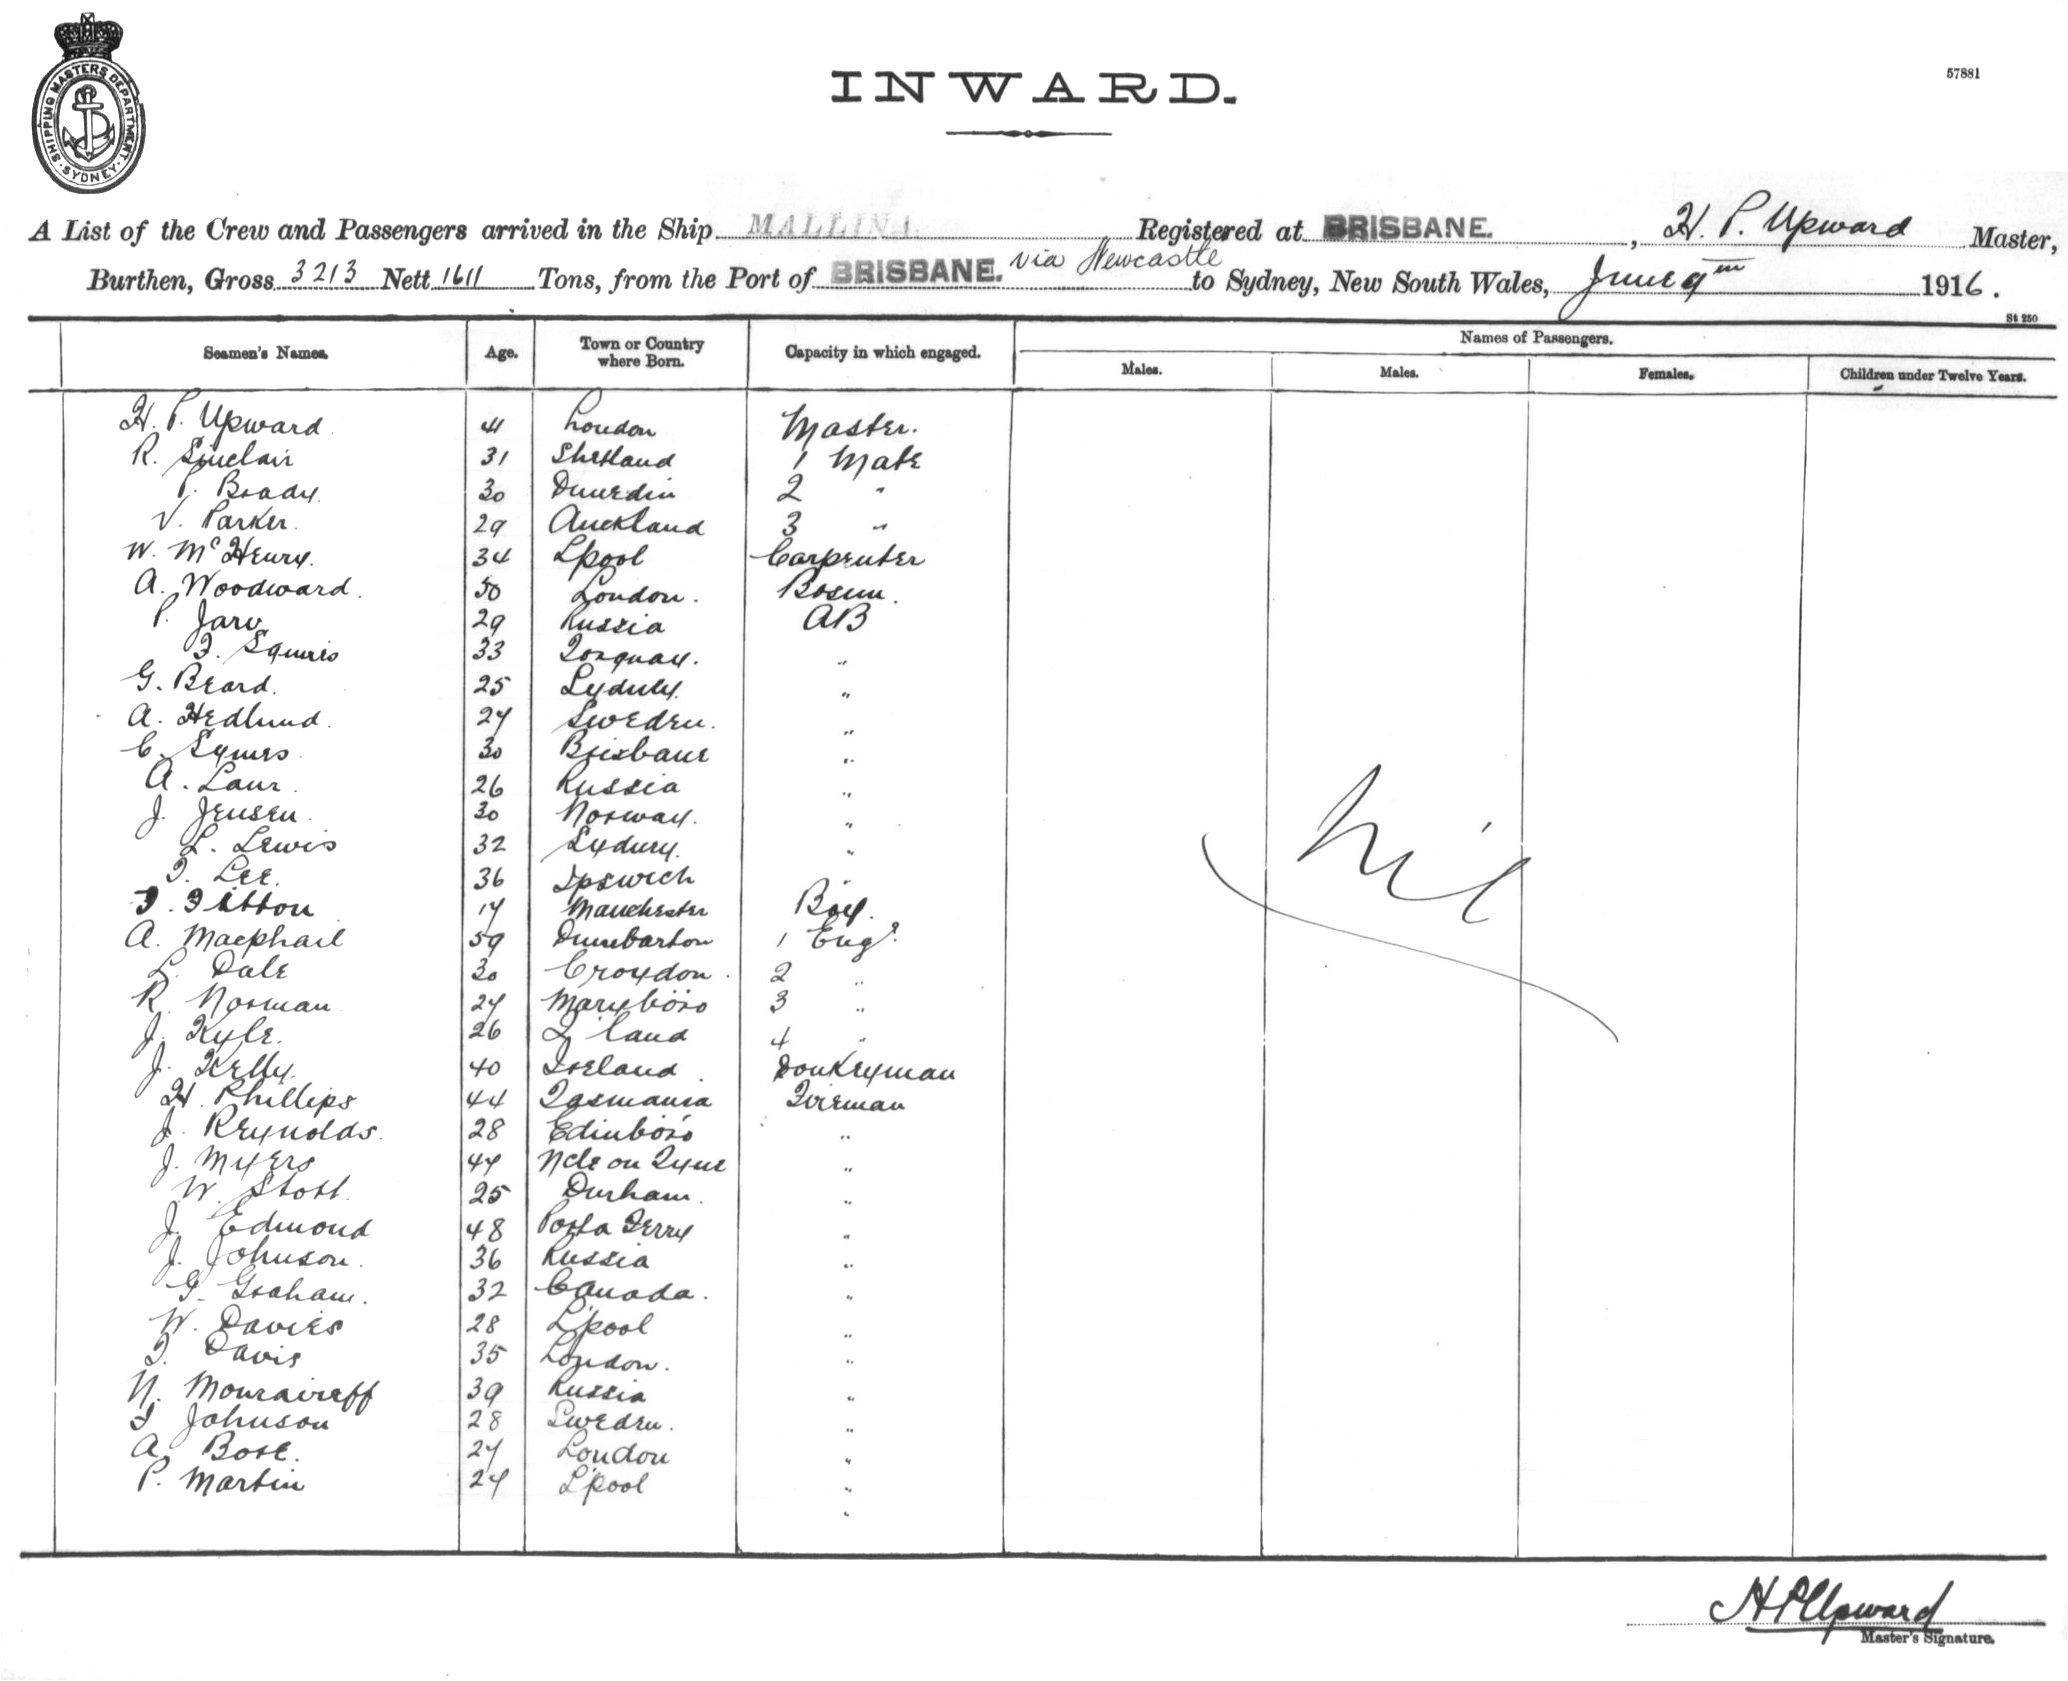 SHIPPING MASTERS DEPARTMENT
SYDNEY
INWARD.
57881
A List of the Crew and Passengers arrived in the Ship MALLINA Registered at BRISBANE. , H. P. Upward Master,
Burthen, Gross 3213 Nett 1611 Tons, from the Port of BRISBANE. via Newcastle to Sydney, New South Wales, June 9th 1916.
St 250
Seamen's Names. Age. Town or Country where Born. Capacity in which engaged. Names of Passengers.
Males. Males. Females. Children under Twelve Years.
H. P. Upward 41 London Master.
R. Sinclair 31 Shetland 1 Mate
P. Brady. 30 Dunedin 2 "
V. Parker. 29 Auckland 3 "
W. McHenry. 34 Lpool Carpenter
A. Woodward. 50 London. Bosun.
P. Jarv 29 Russia AB
F. Squires 33 Torquay. "
G. Beard. 25 Sydney. "
A. Hedlund. 27 Sweden. "
C. Symes 30 Brisbane "
A. Laur. 26 Russia "
J. Jensen. 30 Norway. "
L. Lewis 32 Sydney. "
T. Lee. 36 Ipswich "
F. Fitton 17 Manchester Boy.
A. Macphail 59 Dumbarton 1 Engr.
L. Dale 30 Croydon. 2 "
R. Norman 27 Maryboro 3 "
J. Kyle. 26 Q'land 4 "
J. Kelly. 40 Ireland. Donkeyman
H. Phillips 44 Tasmania Fireman
J. Reynolds. 28 Edinboro "
J. Myers 47 Ncle on Tyne "
W. Stott. 25 Durham. "
J. Edmond 48 Porta Ferry "
J. Johnson. 36 Russia "
G. Graham. 32 Canada. "
W. Davies 28 L'pool "
T. Davis 35 London. "
N. Mouraireff 39 Russia "
F Johnson 28 Sweden. "
A. Bore. 27 London "
P. Martin 27 L'pool "
"
Nil
H P Upward
Master's Signature.